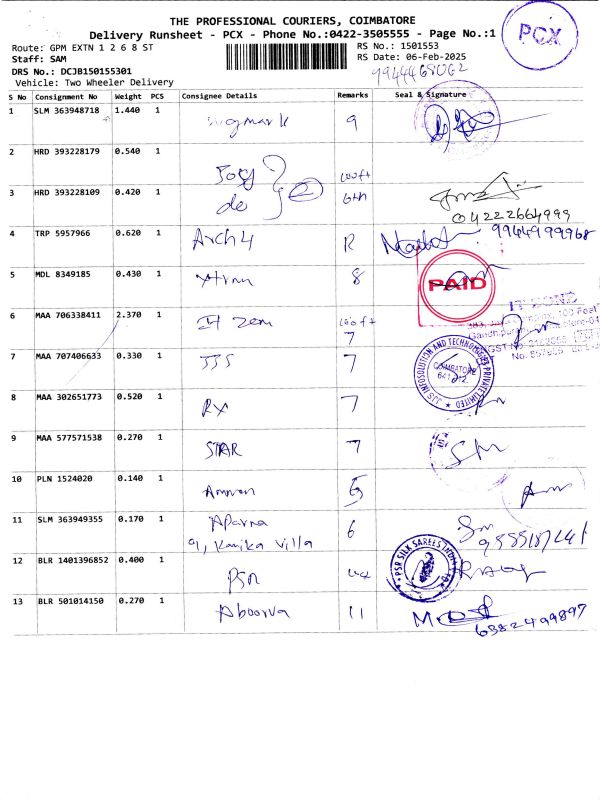 THE PROFESSIONAL COURIERS, COIMBATORE
Delivery Runsheet - PCX - Phone No.:0422-3505555 - Page No.:1
PCX
Route: GPM EXTN 1 2 6 8 ST
RS No.: 1501553
Staff: SAM
RS Date: 06-Feb-2025
DRS No.: DCJB150155301
Vehicle: Two Wheeler Delivery
S No Consignment No Weight PCS Consignee Details Remarks Seal & Signature
1 SLM 363948718 1.440 1 9
2 HRD 393228179 0.540 1 100ft
3 HRD 393228109 0.420 1 6th
04222664999
4 TRP 5957966 0.620 1 Arch 4 R 9944999968
5 MDL 8349185 0.430 1 8
PAID
6 MAA 706338411 2.370 1 It zen 100ft
7
7 MAA 707406633 0.330 1 JJS 7
JJS INFOSOLUTION AND TECHNOLOGIES PRIVATE LIMITED
COIMBATORE
641 012
8 MAA 302651773 0.520 1 RX 7
9 MAA 577571538 0.270 1 STAR 7
10 PLN 1524020 0.140 1 5
11 SLM 363949355 0.170 1 Aparna 6
9, Kanika Villa
12 BLR 1401396852 0.400 1 PSR
PSR SILK SAREES INDIA
13 BLR 501014150 0.270 1 Aboorva 11
6382499897